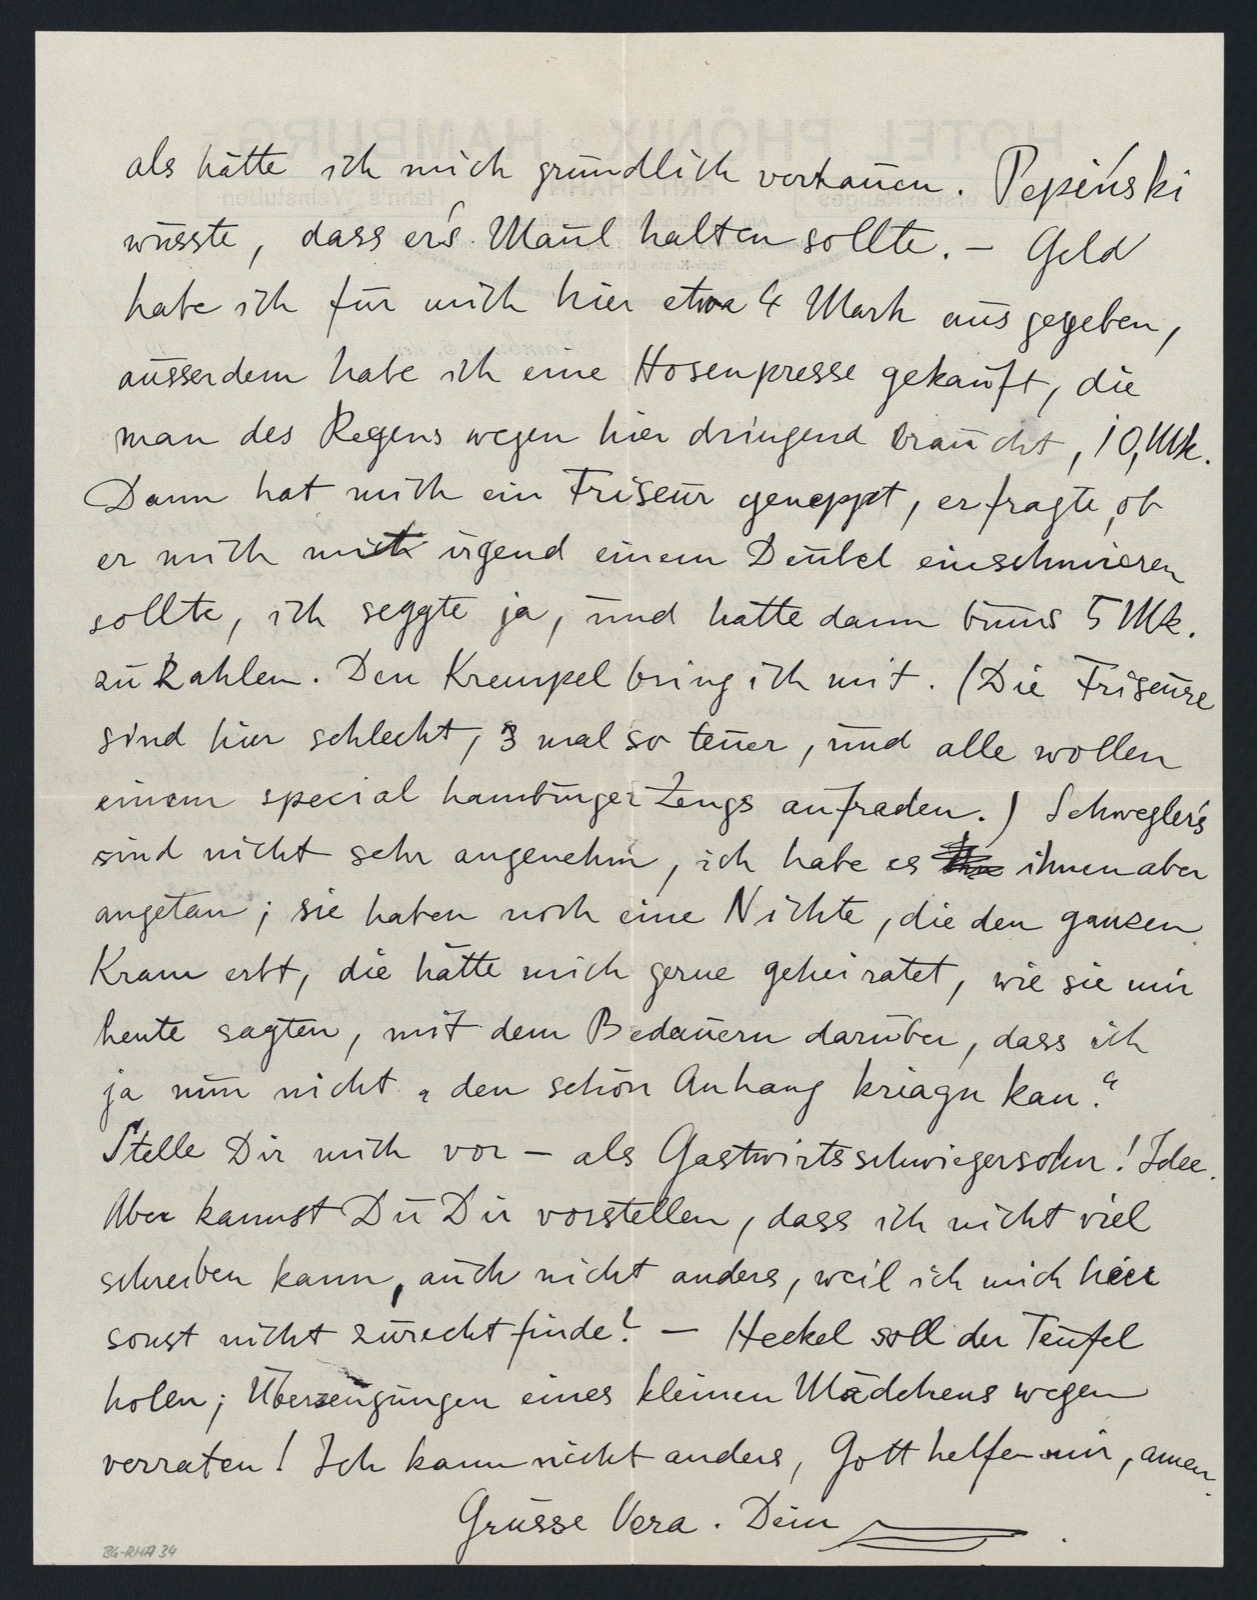 als hätte ich mich gründlich verhauen. Pepiński
wüsste, dass er's Maul halten sollte. – Geld
habe ich für mich hier etwa 4 Mark ausgegeben,
ausserdem habe ich eine Hosenpresse gekauft, die
man des Regens wegen hier dringend braucht, 10, Mk.
Dann hat mich ein Friseur geneppt, er fragte, ob
er mich mit irgend einem Deubel einschmieren
sollte, ich seggte ja, und hatte dann bums 5 Mk.
zu zahlen. Den Krempel bring ich mit. (Die Friseure
sind hier schlecht, 3 mal so teuer, und alle wollen
einem special hamburger Zeugs aufreden.) Schwegler's
sind nicht sehr angenehm, ich habe es ihnen aber
angetan; sie haben noch eine Nichte, die den ganzen
Kram erbt, die hätte mich gerne geheiratet, wie sie mir
heute sagten, mit dem Bedauern darüber, dass ich
ja nun nicht „den schön Anhang kriagn kan."
Stelle Dir mich vor – als Gastwirtsschwiegersohn! Idee.
Aber kannst Du Dir vorstellen, dass ich nicht viel
schreiben kann, auch nicht anders, weil ich mich hier
sonst nicht zurechtfinde? – Heckel soll der Teufel
holen; Überzeugungen eines kleinen Mädchens wegen
verraten! Ich kann nicht anders, Gott helfe mir, amen.
Grüsse Vera. Dein
BG-RHA 34
HOTEL PHÖNIX - HAMBURG
FRITZ HAHN
ersten Ranges
Hahn's Weinstuben